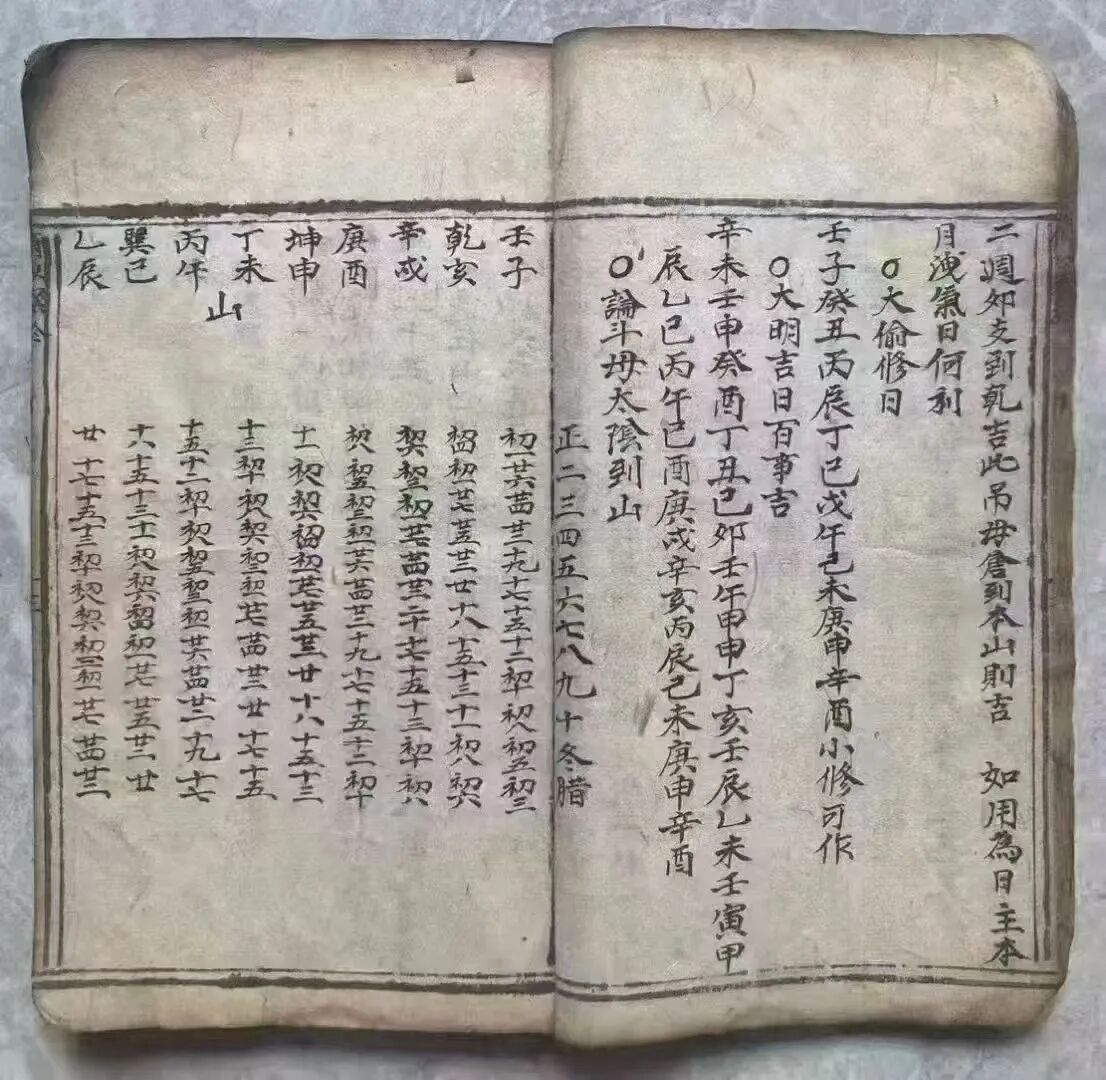 二週卯支到乾吉此吊母詹到本山則吉 如用為日主本
月洩氣日何利
○大偷修日
壬子癸丑丙辰丁巳戊午己未庚申辛酉小修可作
○大明吉日百事吉
辛未壬申癸酉丁丑己卯壬午甲申丁亥壬辰乙未壬寅甲
辰乙巳丙午己酉庚戌辛亥丙辰己未庚申辛酉
○論斗母太陰到山
正二三四五六七八九十冬腊
壬子 初一廿六廿四廿二十九十七十五十二初十初八初五初三
乾亥 初四初一廿七廿五廿三廿十八十五十三十一初八初六
辛戌 初六初三初一廿七廿四廿二二十十七十五十三初十初八
庚酉 初八初五初三初一廿六廿四廿二十九十七十五十二初十
坤申 十一初八初六初四初一廿七廿五廿三廿十八十五十三
丁未 十三初十初八初六初三初一廿七廿四廿二廿十七十五
山
丙午 十五十二初十初八初五初三初一廿六廿四廿二十九十七
巽巳 十八十五十三十一初八初六初四初一廿七廿五廿二廿
乙辰 廿十七十五十三初十初八初六初三初一廿七廿四廿二